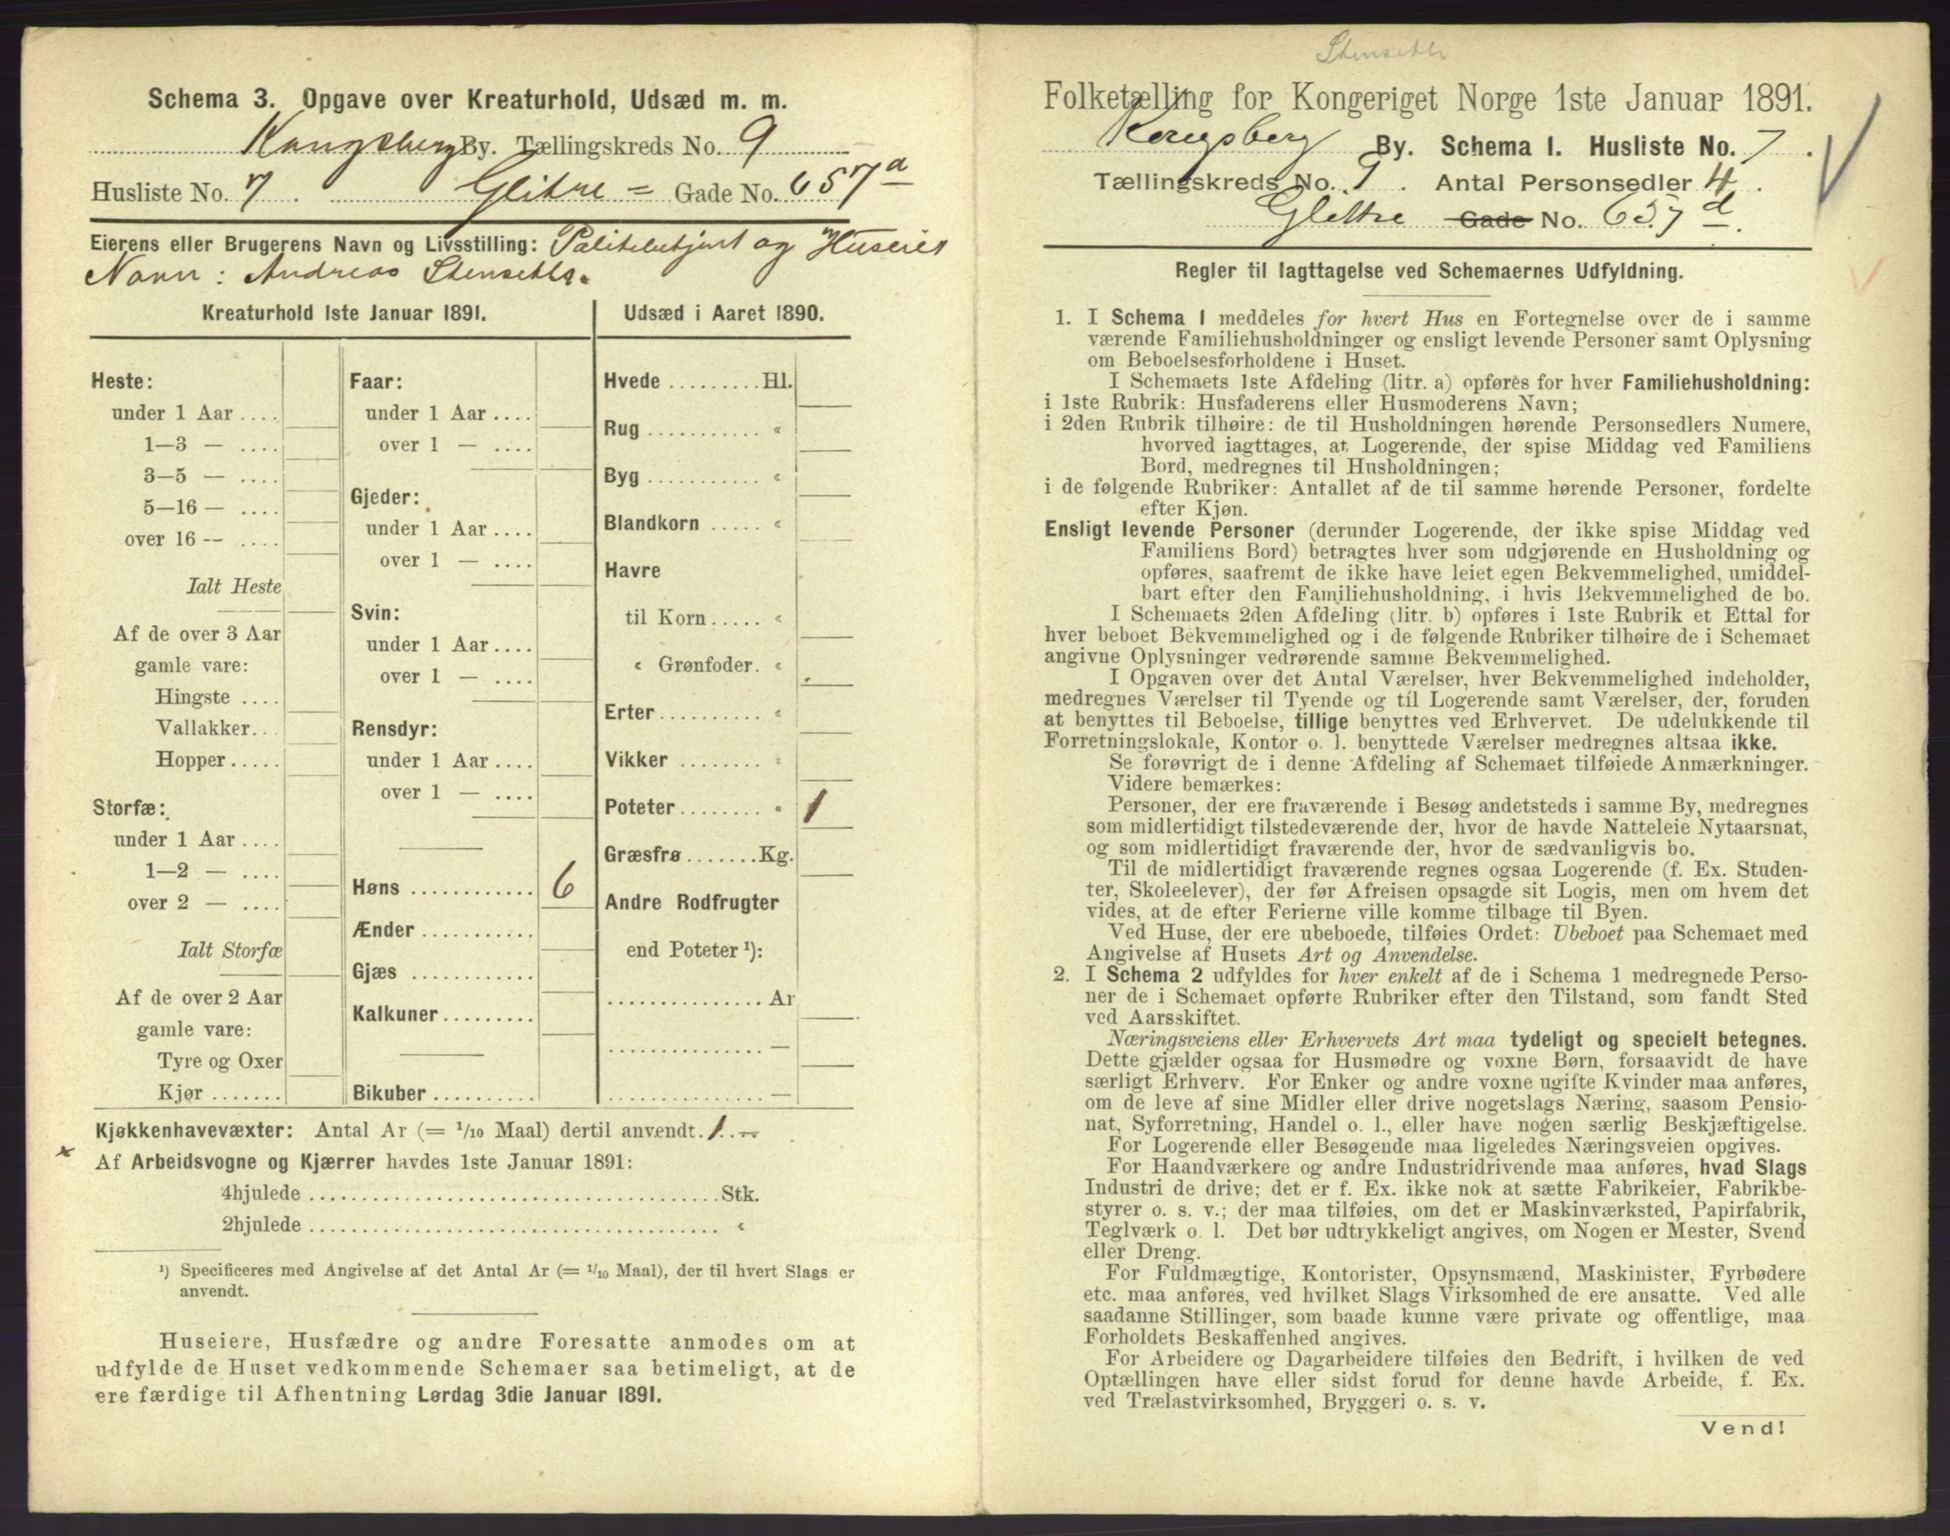 Schema 3. Opgave over Kreaturhold, Udsæd m. m.
Kongsberg By. Tællingskreds No. 9
Husliste No. 7 Glitre = Gade No. 657 a
Eierens eller Brugerens Navn og Livsstilling: Politibetjent og Huseier
Navn: Andreas Stenseth.
Kreaturhold 1ste Januar 1891.
Heste:
under 1 Aar ....
1—3 — ....
3—5 — ....
5—16 — ....
over 16 — ....
Ialt Heste
Af de over 3 Aar
gamle vare:
Hingste ....
Vallakker..
Hopper.....
Storfæ:
under 1 Aar ....
1—2 — ....
over 2 — ....
Ialt Storfæ
Af de over 2 Aar
gamle vare:
Tyre og Oxer
Kjør .......
Faar:
under 1 Aar ....
over 1 — ....
Gjeder:
under 1 Aar ....
over 1 — ....
Svin:
under 1 Aar ....
over 1 — ....
Rensdyr:
under 1 Aar ....
over 1 — ....
Høns ............ 6
Ænder ...........
Gjæs ............
Kalkuner.........
Bikuber ..........
Udsæd i Aaret 1890.
Hvede .........Hl.
Rug ........... «
Byg ........... «
Blandkorn ..... «
Havre
til Korn ..... «
« Grønfoder. «
Erter.......... «
Vikker ........ «
Poteter........ « 1
Græsfrø .......Kg.
Andre Rodfrugter
end Poteter ¹):
............... Ar
............... —
............... —
Kjøkkenhavevæxter: Antal Ar (= 1/10 Maal) dertil anvendt. 1. —
× Af Arbeidsvogne og Kjærrer havdes 1ste Januar 1891:
4hjulede ........................................ Stk.
2hjulede ........................................ «
¹) Specificeres med Angivelse af det Antal Ar (= 1/10 Maal), der til hvert Slags er
anvendt.
Huseiere, Husfædre og andre Foresatte anmodes om at
udfylde de Huset vedkommende Schemaer saa betimeligt, at de
ere færdige til Afhentning Lørdag 3die Januar 1891.
Stenseth
Folketælling for Kongeriget Norge 1ste Januar 1891.
Kongsberg By. Schema I. Husliste No. 7.
Tællingskreds No. 9. Antal Personsedler 4.
Glettre Gade No. 657 d.
Regler til Iagttagelse ved Schemaernes Udfyldning.
1. I Schema 1 meddeles for hvert Hus en Fortegnelse over de i samme
værende Familiehusholdninger og ensligt levende Personer samt Oplysning
om Beboelsesforholdene i Huset.
I Schemaets 1ste Afdeling (litr. a) opføres for hver Familiehusholdning:
i 1ste Rubrik: Husfaderens eller Husmoderens Navn;
i 2den Rubrik tilhøire: de til Husholdningen hørende Personsedlers Numere,
hvorved iagttages, at Logerende, der spise Middag ved Familiens
Bord, medregnes til Husholdningen;
i de følgende Rubriker: Antallet af de til samme hørende Personer, fordelte
efter Kjøn.
Ensligt levende Personer (derunder Logerende, der ikke spise Middag ved
Familiens Bord) betragtes hver som udgjørende en Husholdning og
opføres, saafremt de ikke have leiet egen Bekvemmelighed, umiddel-
bart efter den Familiehusholdning, i hvis Bekvemmelighed de bo.
I Schemaets 2den Afdeling (litr. b) opføres i 1ste Rubrik et Ettal for
hver beboet Bekvemmelighed og i de følgende Rubriker tilhøire de i Schemaet
angivne Oplysninger vedrørende samme Bekvemmelighed.
I Opgaven over det Antal Værelser, hver Bekvemmelighed indeholder,
medregnes Værelser til Tyende og til Logerende samt Værelser, der, foruden
at benyttes til Beboelse, tillige benyttes ved Erhvervet. De udelukkende til
Forretningslokale, Kontor o. l. benyttede Værelser medregnes altsaa ikke.
Se forøvrigt de i denne Afdeling af Schemaet tilføiede Anmærkninger.
Videre bemærkes:
Personer, der ere fraværende i Besøg andetsteds i samme By, medregnes
som midlertidigt tilstedeværende der, hvor de havde Natteleie Nytaarsnat,
og som midlertidigt fraværende der, hvor de sædvanligvis bo.
Til de midlertidigt fraværende regnes ogsaa Logerende (f. Ex. Studen-
ter, Skoleelever), der før Afreisen opsagde sit Logis, men om hvem det
vides, at de efter Ferierne ville komme tilbage til Byen.
Ved Huse, der ere ubeboede, tilføies Ordet: Ubeboet paa Schemaet med
Angivelse af Husets Art og Anvendelse.
2. I Schema 2 udfyldes for hver enkelt af de i Schema 1 medregnede Perso-
ner de i Schemaet opførte Rubriker efter den Tilstand, som fandt Sted
ved Aarsskiftet.
Næringsveiens eller Erhvervets Art maa tydeligt og specielt betegnes.
Dette gjælder ogsaa for Husmødre og voxne Børn, forsaavidt de have
særligt Erhverv. For Enker og andre voxne ugifte Kvinder maa anføres,
om de leve af sine Midler eller drive nogetslags Næring, saasom Pensio-
nat, Syforretning, Handel o. l., eller have nogen særlig Beskjæftigelse.
For Logerende eller Besøgende maa ligeledes Næringsveien opgives.
For Haandværkere og andre Industridrivende maa anføres, hvad Slags
Industri de drive; det er f. Ex. ikke nok at sætte Fabrikeier, Fabrikbe-
styrer o. s. v.; der maa tilføies, om det er Maskinværksted, Papirfabrik,
Teglværk o. l. Det bør udtrykkeligt angives, om Nogen er Mester, Svend
eller Dreng.
For Fuldmægtige, Kontorister, Opsynsmænd, Maskinister, Fyrbødere
etc. maa anføres, ved hvilket Slags Virksomhed de ere ansatte. Ved alle
saadanne Stillinger, som baade kunne være private og offentlige, maa
Forholdets Beskaffenhed angives.
For Arbeidere og Dagarbeidere tilføies den Bedrift, i hvilken de ved
Optællingen have eller sidst forud for denne havde Arbeide, f. Ex.
ved Trælastvirksomhed, Bryggeri o. s. v.
Vend!